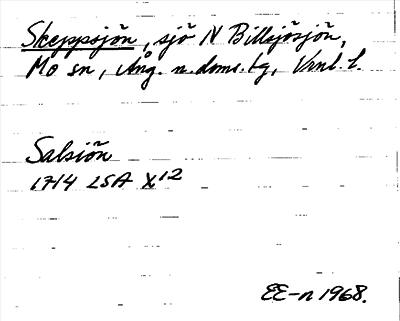 Skeppsjön, sjö N Billsjösjön,
Mo sn, Ång. n. doms. tg, Vrnl. l.
Salsiön
1714 LSA X12
EE-n 1968.